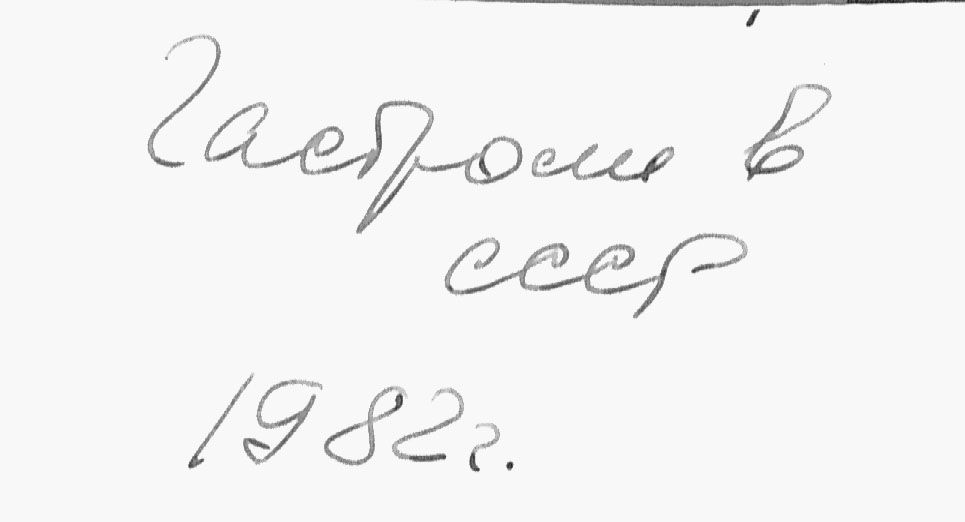 Гастроли в
СССР
1982г.